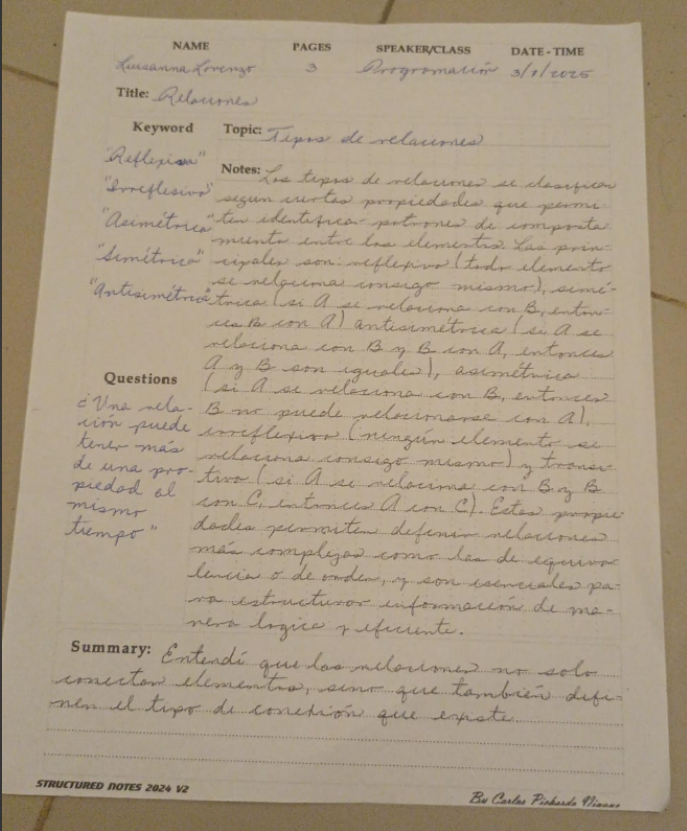 NAME PAGES SPEAKER/CLASS DATE - TIME
Luisanna Lorenzo 3 Programación 3/9/2025
Title: Relaciones
Keyword
"Reflexiva"
"Irreflesiva"
"Asimétrica"
"Simétrica"
"Antisimétrica"
Questions
¿Una rela-
ción puede
tener más
de una pro-
piedad al
mismo
tiempo"
Topic: Tipos de relaciones
Notes: Los tipos de relaciones se clasifican
según ciertas propiedades que permi-
ten identificar patrones de comporta
miento entre los elementos. Las prin-
cipales son: reflexiva (todo elemento
se relaciona consigo mismo), simé-
trica (si A se relaciona con B, enton-
ces B con A) antisimétrica (si A se
relaciona con B y B con A, entonces
A y B son iguales), asimétrica
(si A se relaciona con B, entonces
B no puede relacionarse con A),
irreflexiva (ningún elemento se
relaciona consigo mismo) y transi-
tiva (si A se relaciona con B y B
con C, entonces A con C). Estas propie-
dades permiten definir relaciones
más complejas como las de equiva
lencia o de orden, y son esenciales pa-
ra estructurar información de ma-
nera logica y eficiente.
Summary: Entendí que las relaciones no solo
conectan elementos, sino que también defi-
nen el tipo de conexión que existe
STRUCTURED NOTES 2024 V2
By Carlos Pichardo